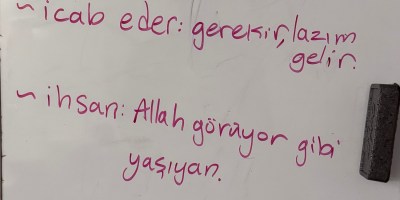 ~ icab eder: gerekir, lazım
gelir.
~ ihsan: Allah görüyor gibi
yaşıyan.